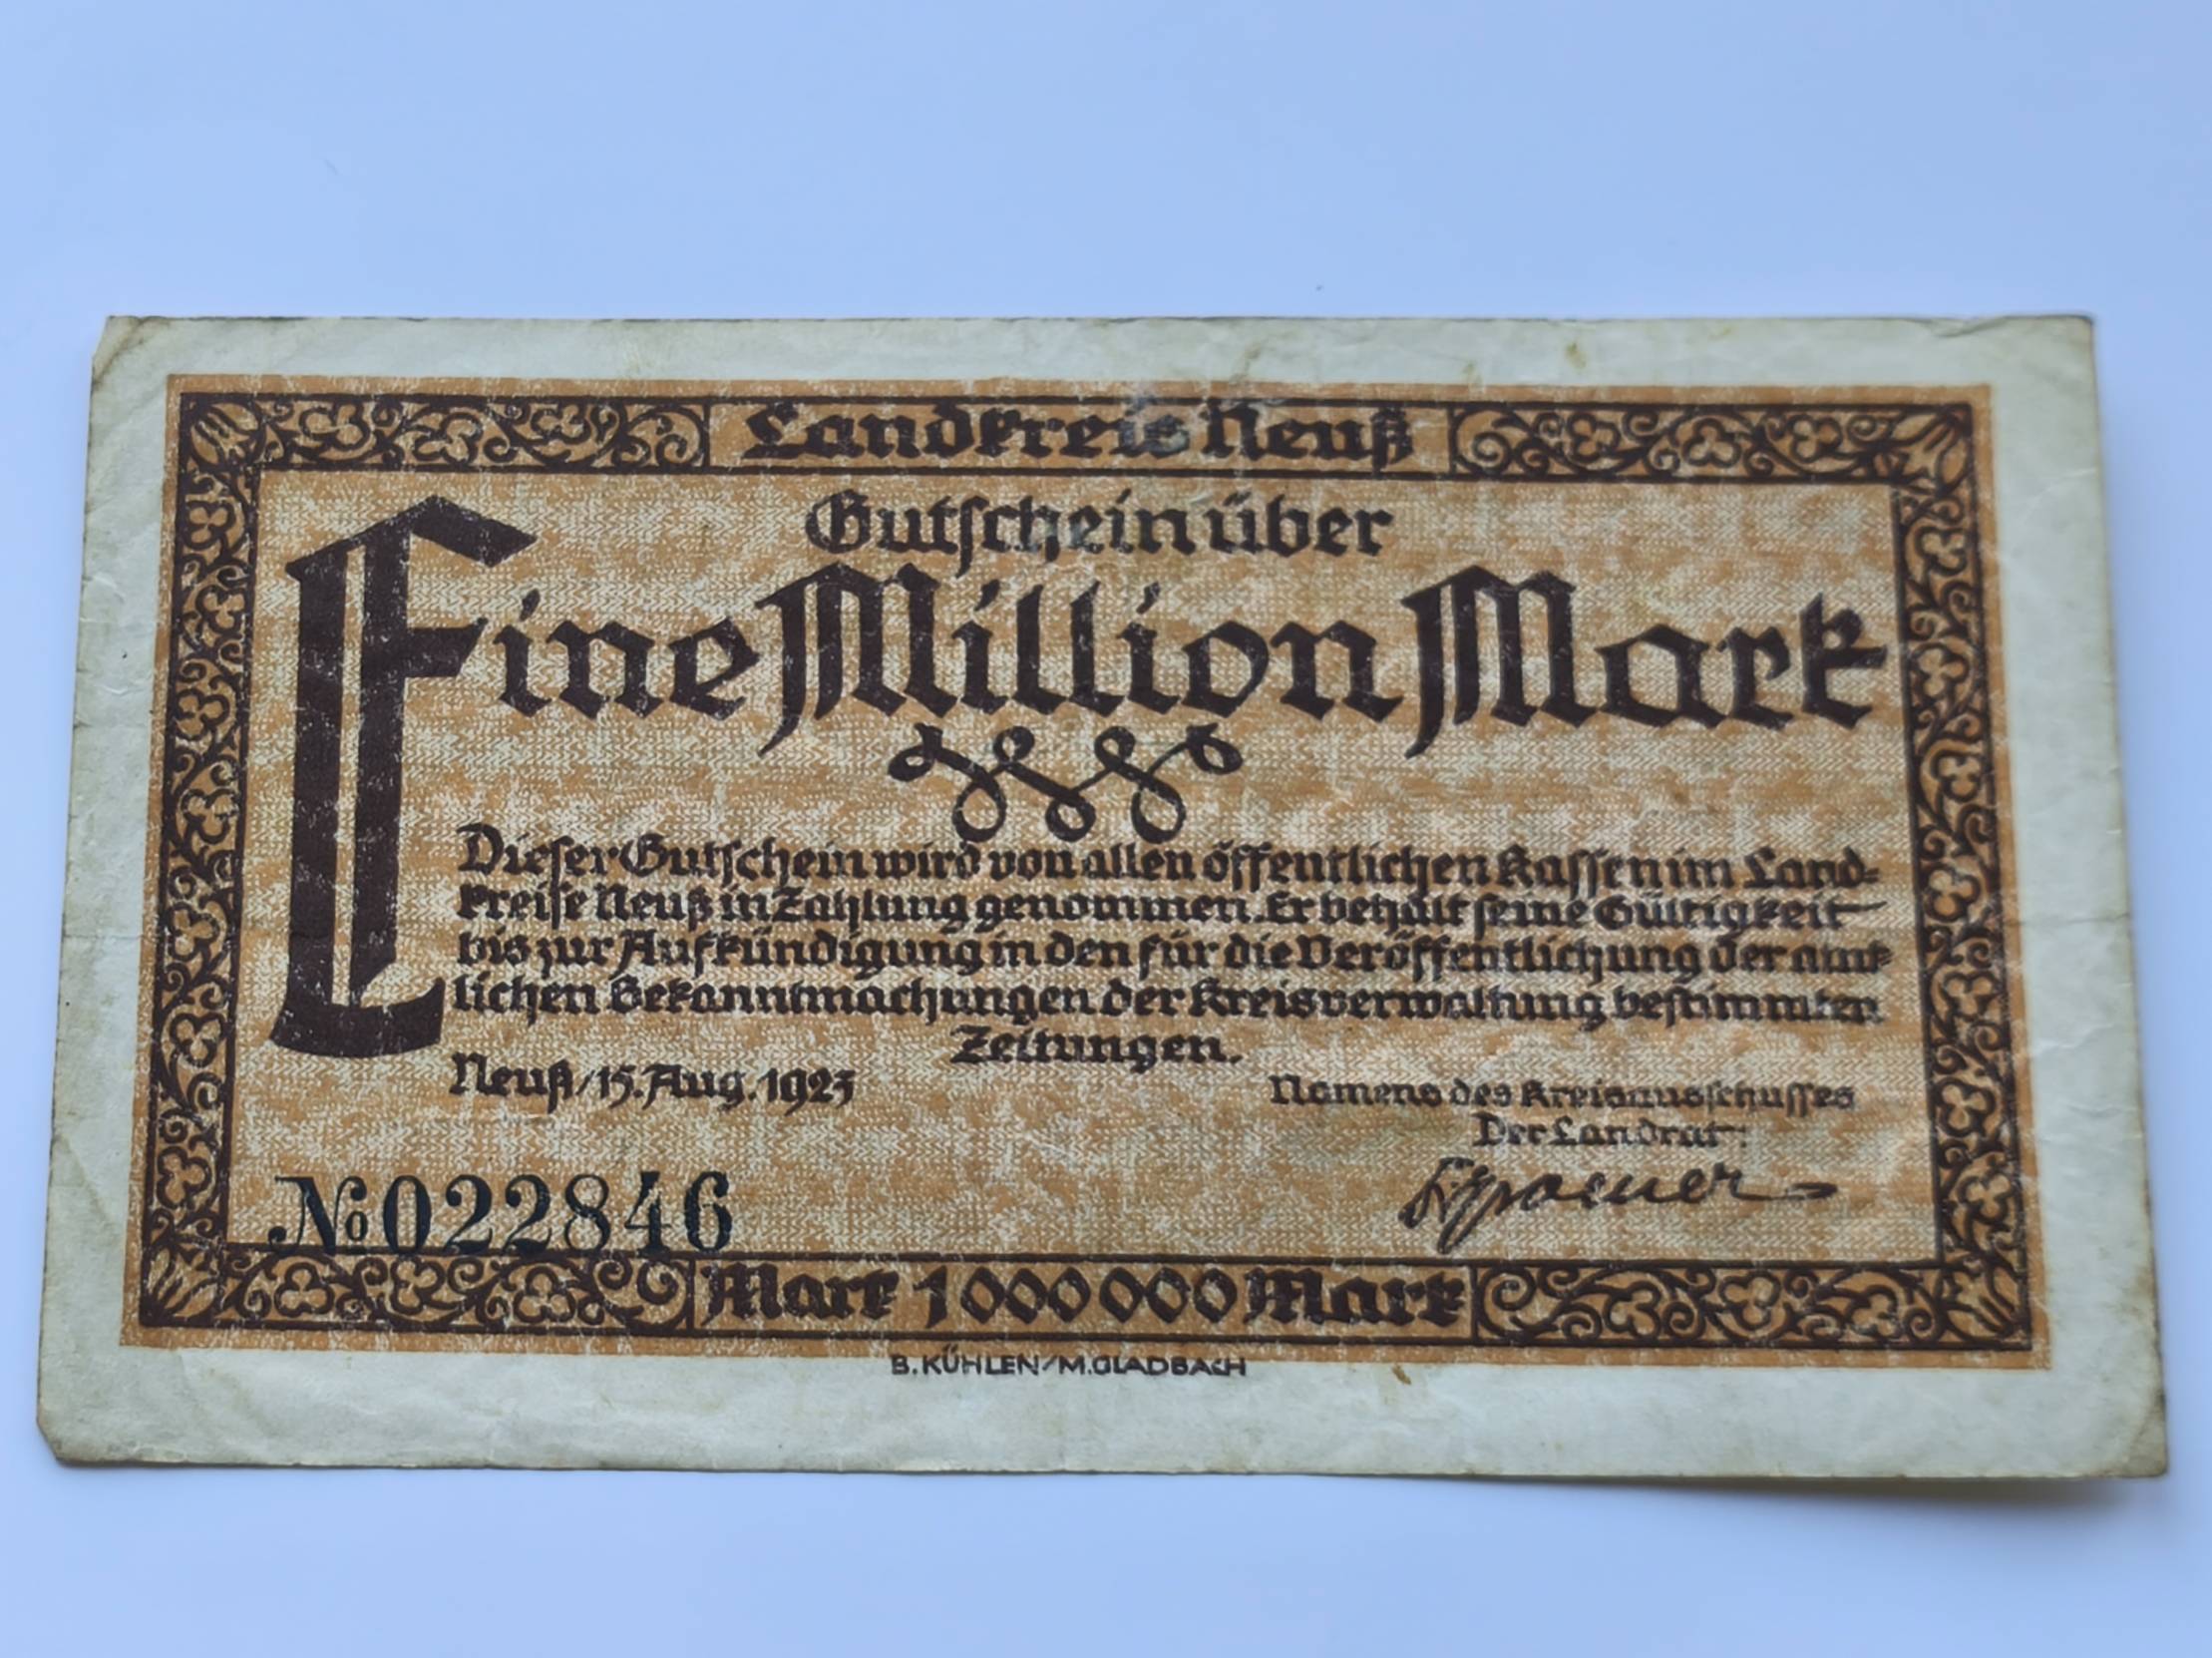 Landkreis Neuß
Gutschein über
Eine Million Mark
Dieser Gutschein wird von allen öffentlichen Kassen im Land-
kreise Neuß in Zahlung genommen. Er behält seine Gültigkeit
bis zur Aufkündigung in den für die Veröffentlichung der amt-
lichen Bekanntmachungen der Kreisverwaltung bestimmten
Zeitungen.
Neuß, 15. Aug. 1923
Namens des Kreisausschusses
Der Landrat:
№ 022846
Mark 1 000 000 Mark
B. KÜHLEN/M. GLADBACH